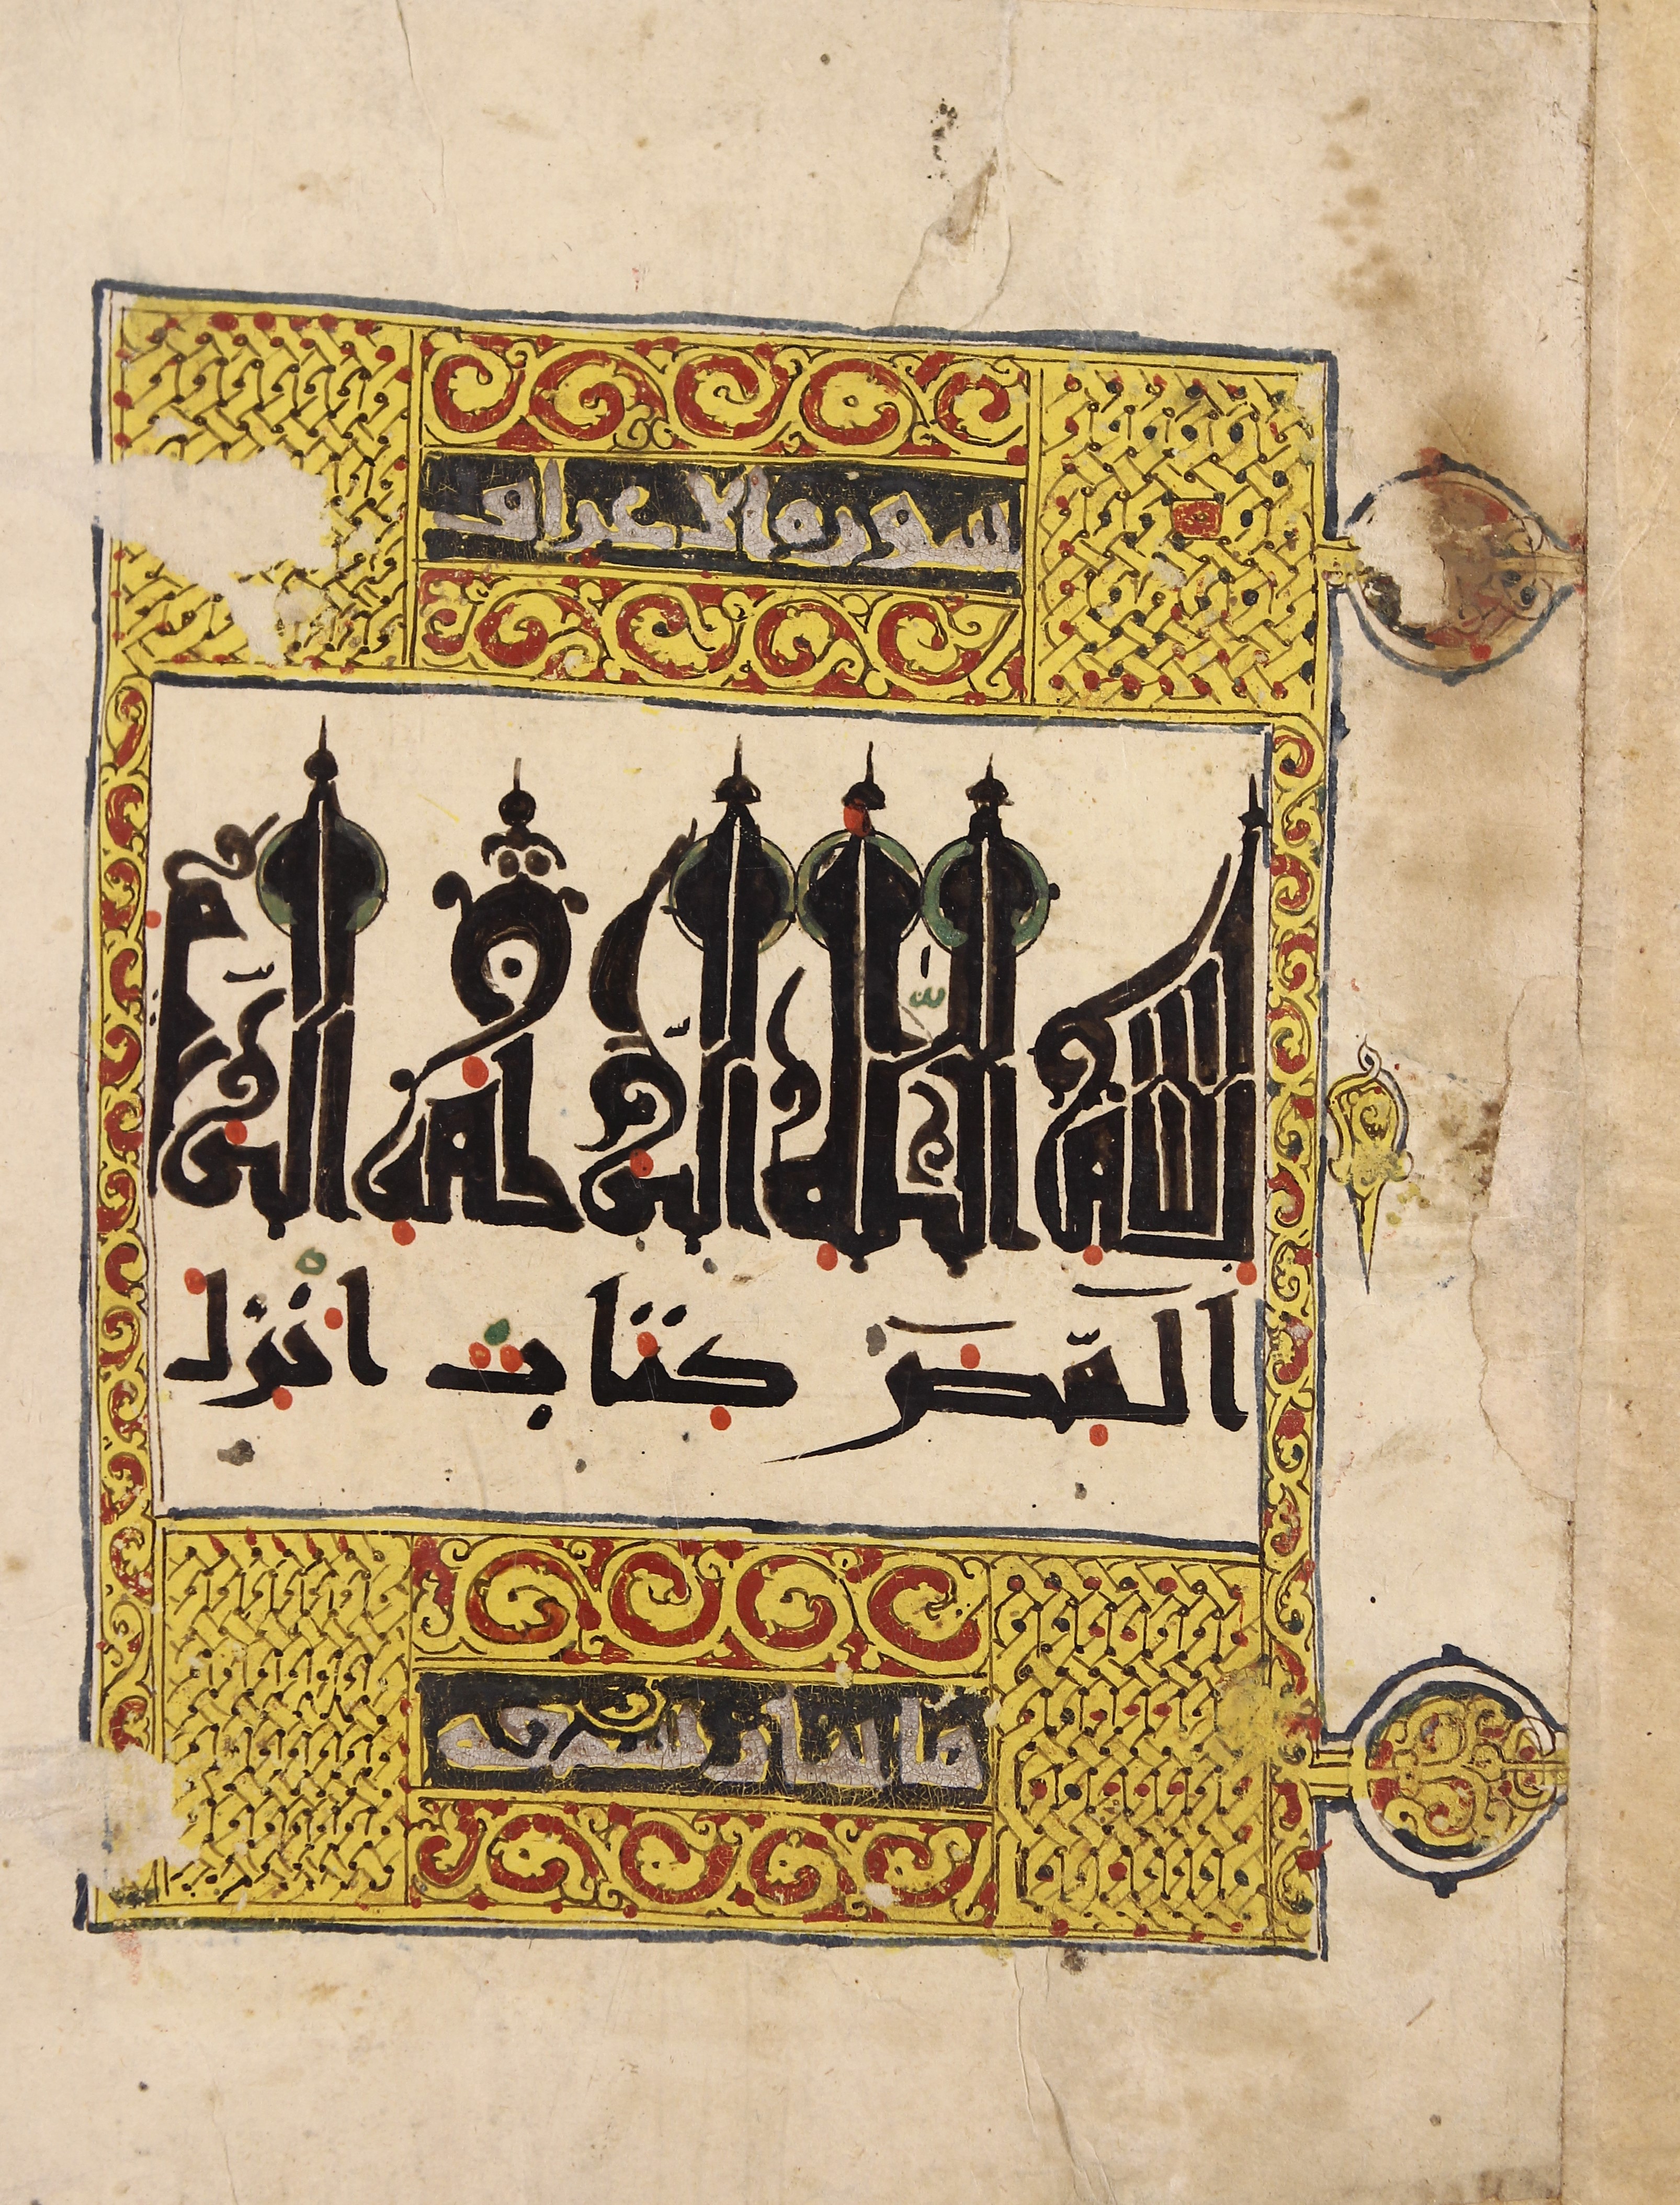 سورة الاعراف
بسم الله الرحمن الرحيم
المص كتاب انزل